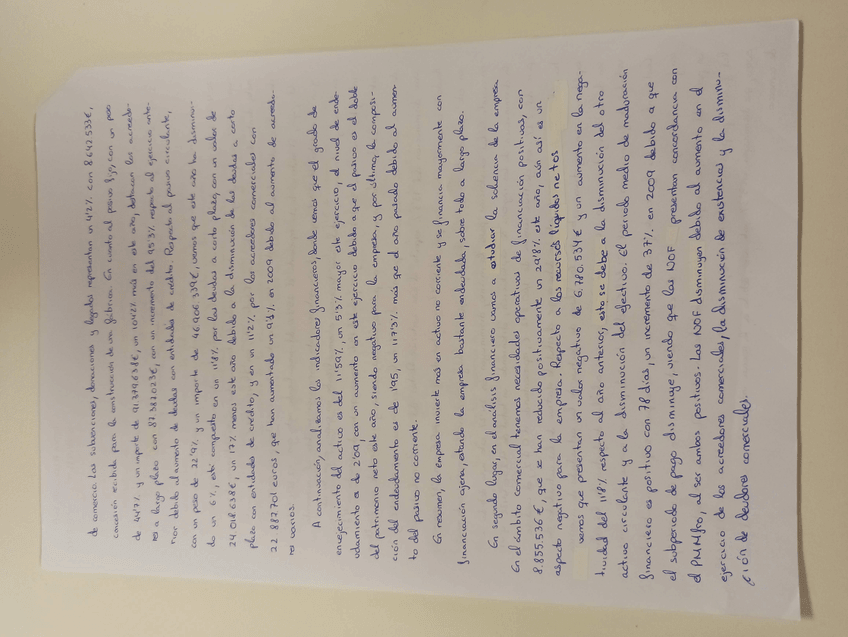 de comercio. Las subvenciones, donaciones y legados representan un 4'2% con 8.642.533€,
concesión recibida para la construcción de una fábrica. En cuanto al pasivo fijo, con un peso
de 44'7% y un importe de 91.379.638€, un 104'2% más en este año, destacan los acreedo-
res a largo plazo con 87.387.023€, con un incremento del 95'3% respecto al ejercicio ante-
rior debido al aumento de deudas con entidades de crédito. Respecto al pasivo circulante,
con un peso de 22'9% y un importe de 46.906.339€, vemos que este año ha disminui-
do un 6%, está compuesto en un 11'8% por las deudas a corto plazo, con un valor de
24.018.638€, un 17% menos este año debido a la disminución de las deudas a corto
plazo con entidades de crédito, y en un 11'2% por los acreedores comerciales con
22.887.701 euros, que han aumentado un 9'1% en 2009 debido al aumento de acreedo-
res varios.
A continuación, analizamos los indicadores financieros, donde vemos que el grado de
envejecimiento del activo es del 11'59%, un 5'3% mayor este ejercicio, el nivel de ende-
udamiento es de 2'09, con un aumento en este ejercicio debido a que el pasivo es el doble
del patrimonio neto este año, siendo negativo para la empresa, y por último, la composi-
ción del endeudamiento es de 1'95, un 117'3% más que el año pasado debido al aumen-
to del pasivo no corriente.
En resumen, la empresa invierte más en activo no corriente y se financia mayormente con
financiación ajena, estando la empresa bastante endeudada, sobre todo a largo plazo.
En segundo lugar, en el análisis financiero vamos a estudiar la solvencia de la empresa.
En el ámbito comercial tenemos necesidades operativas de financiación positivas, con
8.855.536€, que se han reducido positivamente un 29'8% este año, aún así es un
aspecto negativo para la empresa. Respecto a los recursos líquidos netos
vemos que presentan un valor negativo de 6.780.534€ y un aumento en la nega-
tividad del 118% respecto al año anterior, esto se debe a la disminución del otro
activo circulante y a la disminución del efectivo. El periodo medio de maduración
financiero es positivo con 78 días, un incremento de 37% en 2009 debido a que
el subperiodo de pago disminuye, viendo que las NOF presentan concordancia con
el PMMfro, al ser ambos positivos. Las NOF disminuyen debido al aumento en el
ejercicio de los acreedores comerciales, la disminución de existencias y la disminu-
ción de deudores comerciales.